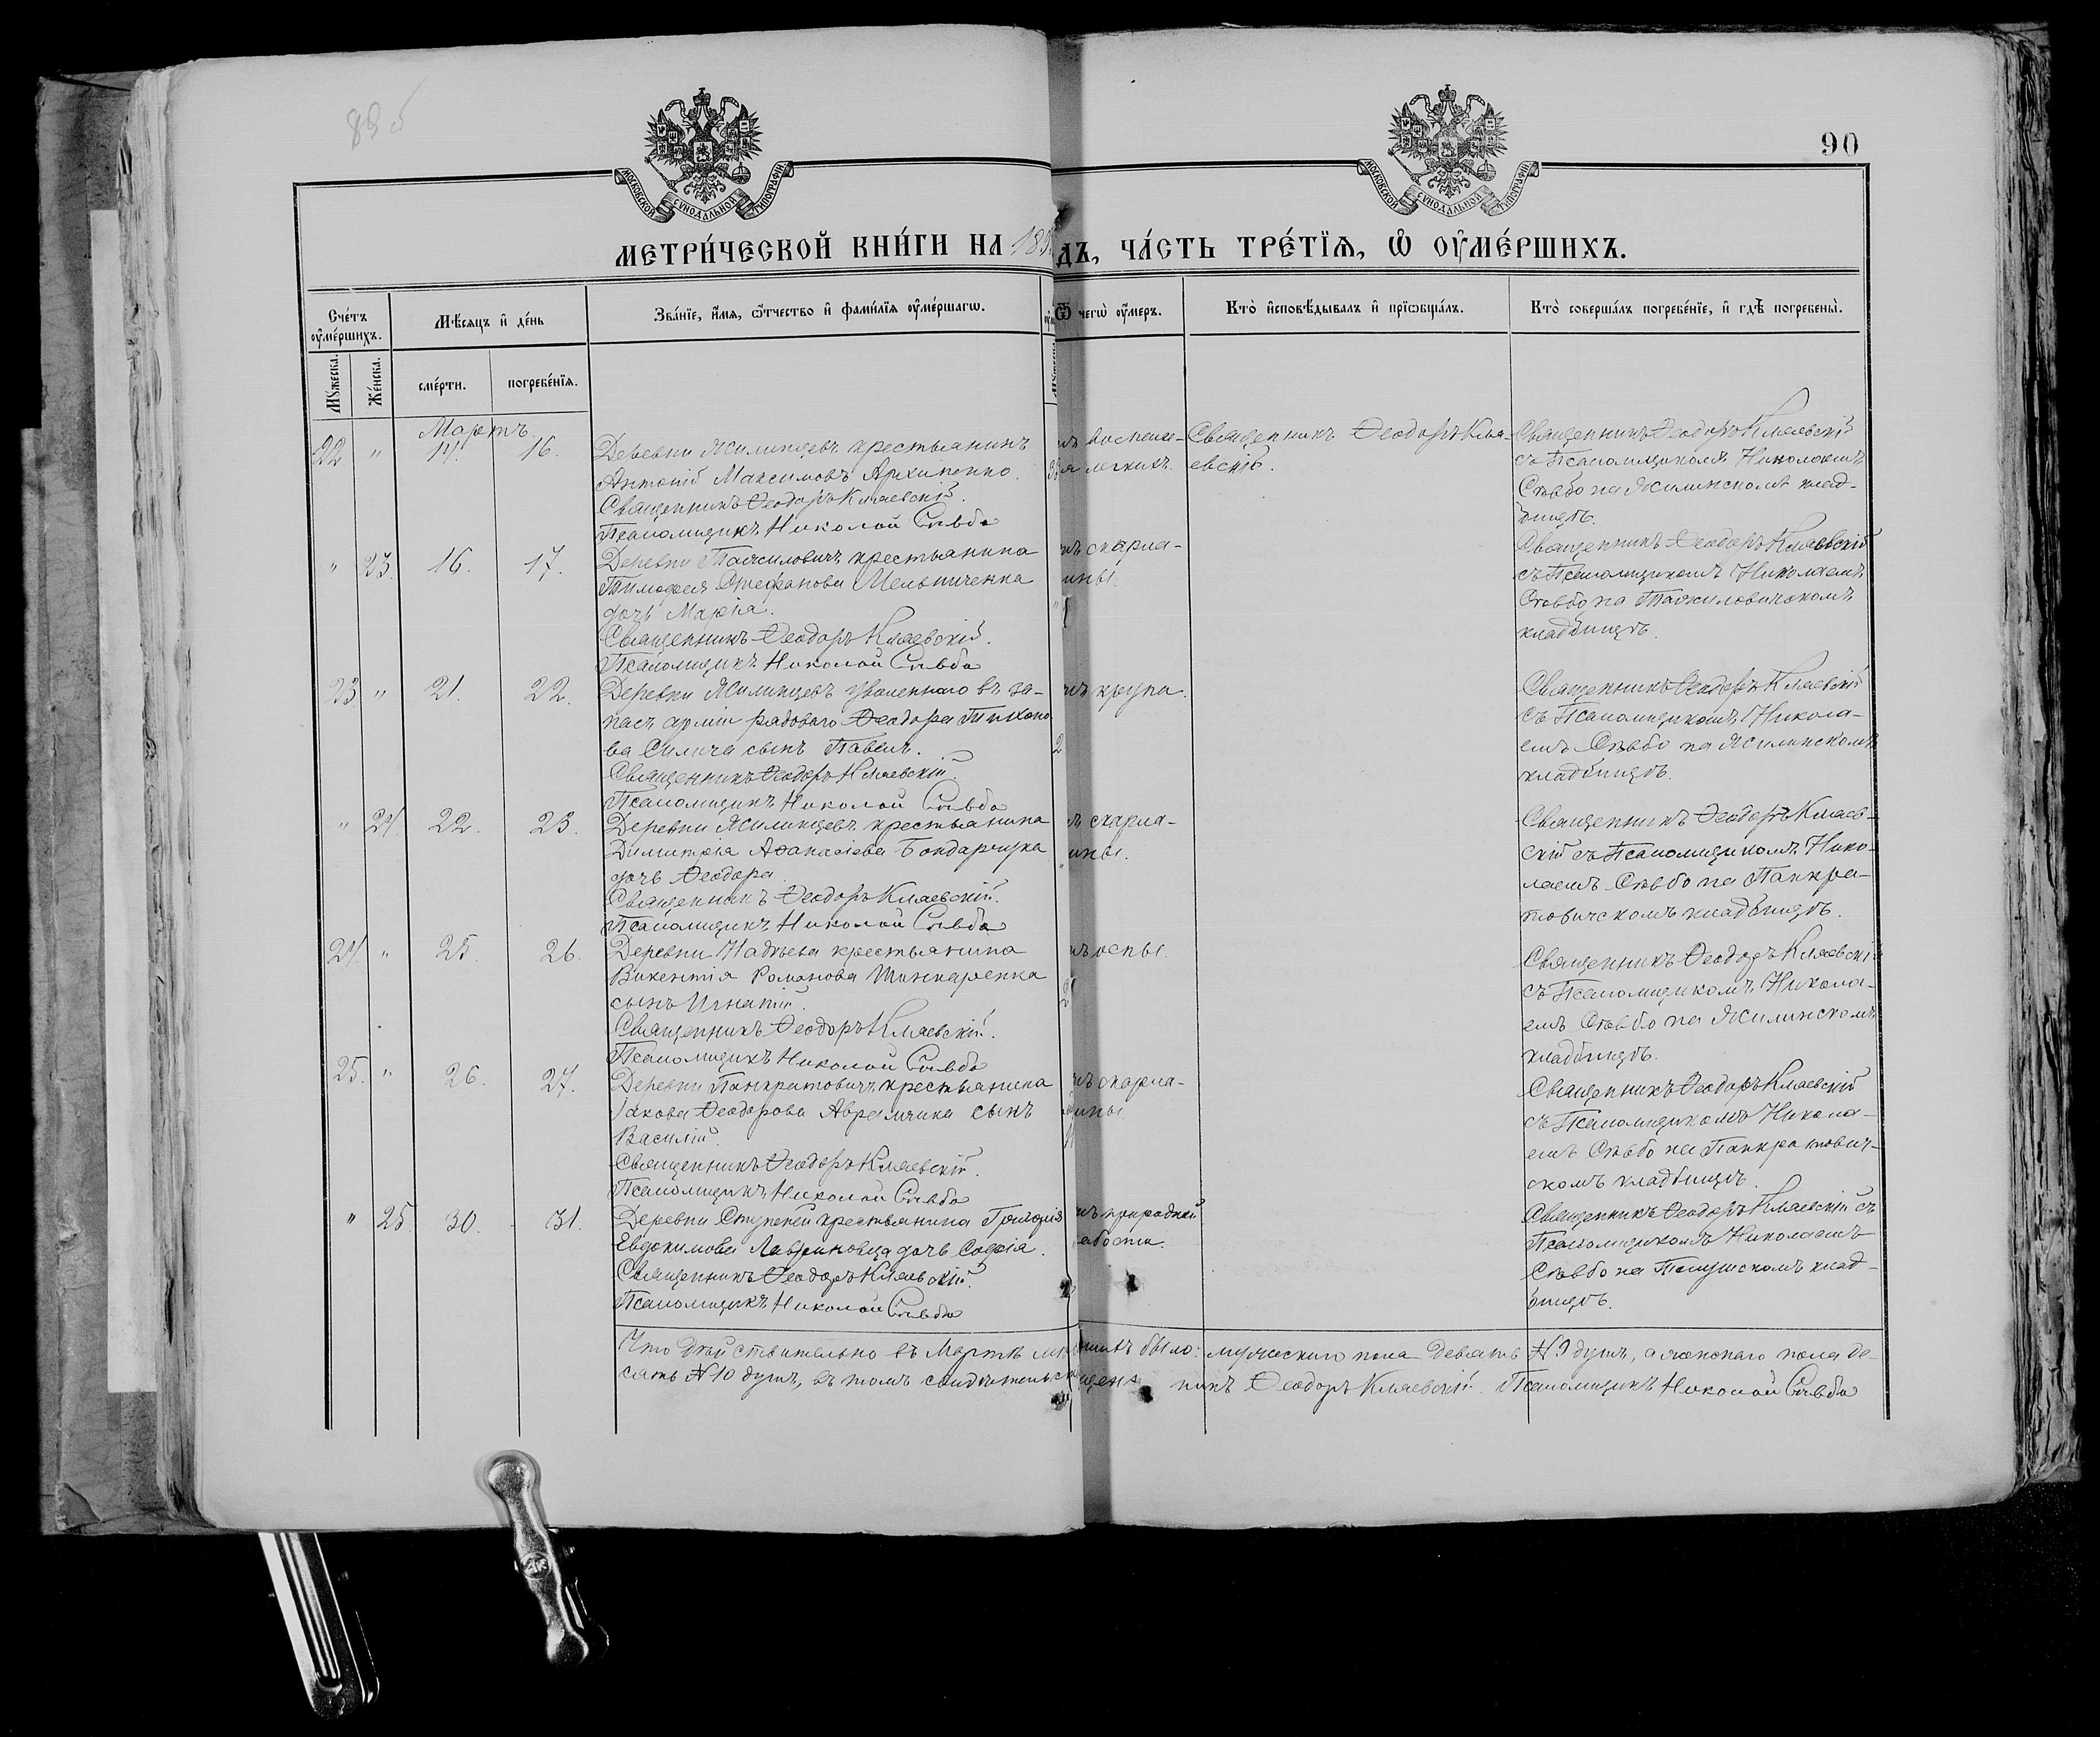 89 б
90
МОСКОВСКОЙ СУНОДАЛЬНОЙ ТИПОГРАФІИ
МОСКОВСКОЙ СУНОДАЛЬНОЙ ТИПОГРАФІИ
МЕТРИ́ЧЕСКОЙ КНИ́ГИ НА 189
ДЪ, ЧА́СТЬ ТРЕ́ТЇѦ, Ѡ ОУМЕ́РШИХЪ.
Сче́тъ оуме́ршихъ.
Мѣ́сяцъ и де́нь
Зва́нїе, и́мя, ѻ́тчество и фами́лїя оуме́ршагѡ.
Ѿ чегѡ̀ оу́меръ.
Кто̀ исповѣ́дывалъ и прїѡбща́лъ.
Кто̀ соверша́лъ погребе́нїе, и гдѣ̀ погребены̀.
Мꙋ́жеска.
Же́нска.
сме́рти.
погребе́нїя.
Мартъ.
22 " 14. 16.
Деревни Жилинцевъ крестьянинъ
Антоній Максимовъ Архипенко.
Священникъ Ѳеодоръ Кляевскій.
Псаломщикъ Николай Стебо
воспале-
легкихъ.
Священникъ Ѳеодоръ Кля-
евскій.
Священникъ Ѳеодоръ Кляевскій
съ Псаломщикомъ Николаемъ
Стебо на Жилинскомъ клад-
бищѣ.
" 23. 16. 17.
Деревни Тажиловичъ крестьянина
Тимоѳея Стефанова Мельниченка
дочь Марія.
Священникъ Ѳеодоръ Кляевскій.
Псаломщикъ Николай Стебо
скарла-
ины.
Священникъ Ѳеодоръ Кляевскій
съ Псаломщикомъ Николаемъ
Стебо на Тажиловичскомъ
кладбищѣ.
23 " 21. 22.
Деревни Жилинцевъ уволеннаго въ за-
пасъ арміи рядового Ѳеодора Тихоно
ва Силича сынъ Павелъ.
Священникъ Ѳеодоръ Кляевскій.
Псаломщикъ Николай Стебо
2
крупа.
Священникъ Ѳеодоръ Кляевскій
съ Псаломщикомъ Никола-
емъ Стебо на Жилинскомъ
кладбищѣ.
" 24 22. 23.
Деревни Жилинцевъ крестьянина
Димитрія Аѳанасіева Бондарчука
дочь Ѳеодора
Священникъ Ѳеодоръ Кляевскій.
Псаломщикъ Николай Стебо
скарла-
ины.
Священникъ Ѳеодоръ Кляев-
скій съ Псаломщикомъ Нико-
лаемъ Стебо на Панкра-
товичскомъ кладбищѣ.
24. " 25. 26.
Деревни Надѣева крестьянина
Викентія Романова Шинкаренка
сынъ Игнатій.
Священникъ Ѳеодоръ Кляевскій.
Псаломщикъ Николай Стебо
оспы.
Священникъ Ѳеодоръ Кляевскій
съ Псаломщикомъ Никола-
емъ Стебо на Жилинскомъ
кладбищѣ.
25. " 26. 27.
Деревни Панкратовичъ крестьянина
Іакова Ѳеодорова Аврамчика сынъ
Василій.
Священникъ Ѳеодоръ Кляевскій.
Псаломщикъ Николай Стебо
скарла-
ины
Священникъ Ѳеодоръ Кляевскій
съ Псаломщикомъ Никола-
емъ Стебо на Панкратович-
скомъ кладбищѣ.
" 25 30. 31.
Деревни Ступеней крестьянина Григорія
Евдокимова Лавриновца дочь Софія.
Священникъ Ѳеодоръ Кляевскій.
Псаломщикъ Николай Стебо
природной
абости.
Священникъ Ѳеодоръ Кляевскій съ
Псаломщикомъ Николаемъ
Стебо на клад-
бищѣ.
Что дѣйствительно въ Мартѣ было: мужескаго пола девять № 9 душъ, а женскаго пола де-
сять № 10 душъ, въ томъ Ѳеодоръ Кляевскій. Псаломщикъ Николай Стебо